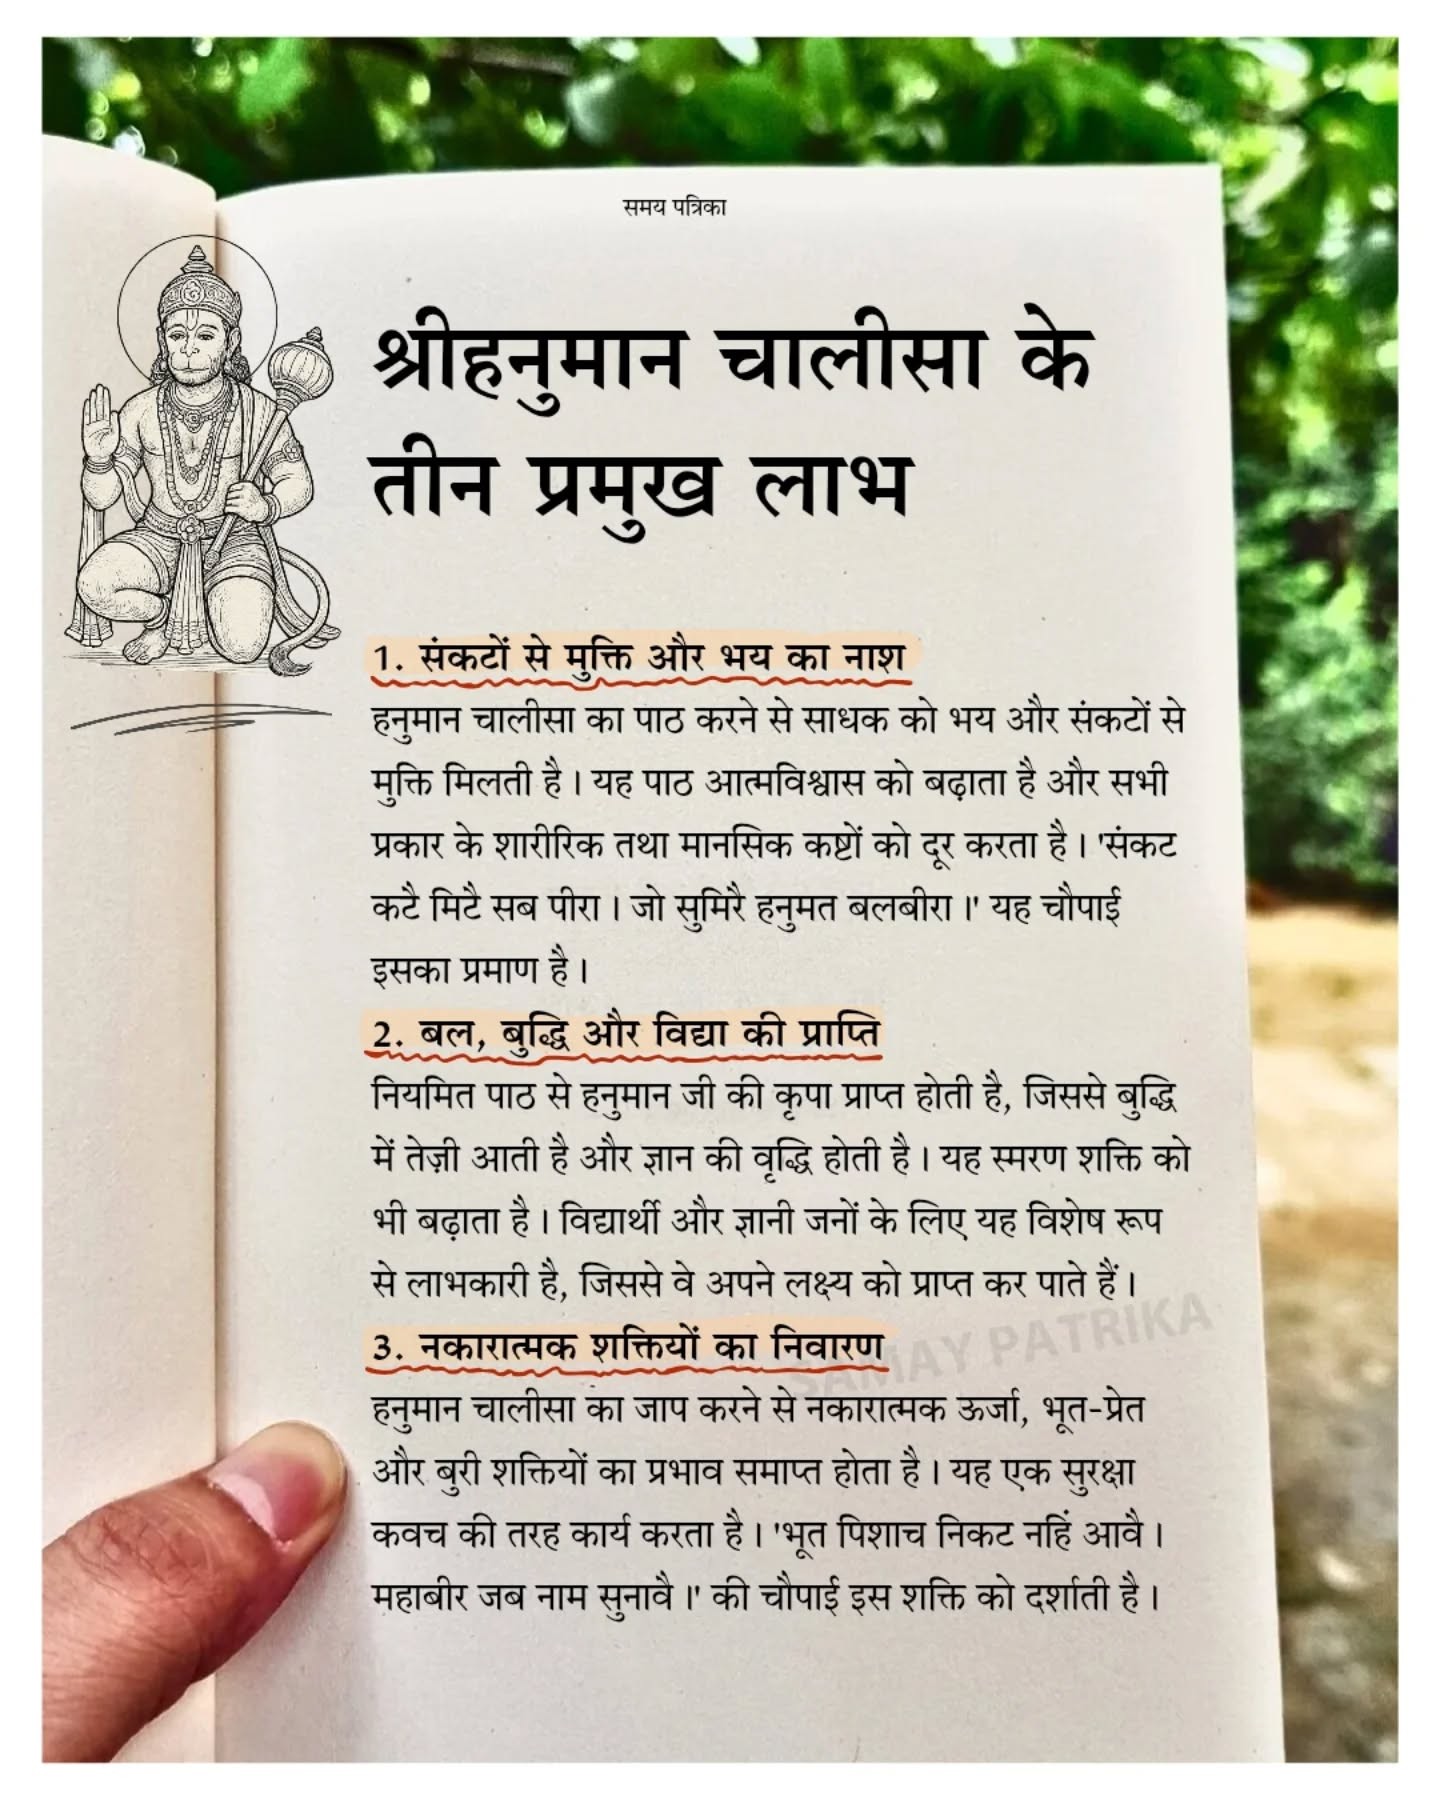 समय पत्रिका
श्रीहनुमान चालीसा के
तीन प्रमुख लाभ
1. संकटों से मुक्ति और भय का नाश
हनुमान चालीसा का पाठ करने से साधक को भय और संकटों से
मुक्ति मिलती है। यह पाठ आत्मविश्वास को बढ़ाता है और सभी
प्रकार के शारीरिक तथा मानसिक कष्टों को दूर करता है। 'संकट
कटै मिटै सब पीरा। जो सुमिरै हनुमत बलबीरा।' यह चौपाई
इसका प्रमाण है।
2. बल, बुद्धि और विद्या की प्राप्ति
नियमित पाठ से हनुमान जी की कृपा प्राप्त होती है, जिससे बुद्धि
में तेज़ी आती है और ज्ञान की वृद्धि होती है। यह स्मरण शक्ति को
भी बढ़ाता है। विद्यार्थी और ज्ञानी जनों के लिए यह विशेष रूप
से लाभकारी है, जिससे वे अपने लक्ष्य को प्राप्त कर पाते हैं।
SAMAY PATRIKA
3. नकारात्मक शक्तियों का निवारण
हनुमान चालीसा का जाप करने से नकारात्मक ऊर्जा, भूत-प्रेत
और बुरी शक्तियों का प्रभाव समाप्त होता है। यह एक सुरक्षा
कवच की तरह कार्य करता है। 'भूत पिशाच निकट नहिं आवै।
महाबीर जब नाम सुनावै।' की चौपाई इस शक्ति को दर्शाती है।